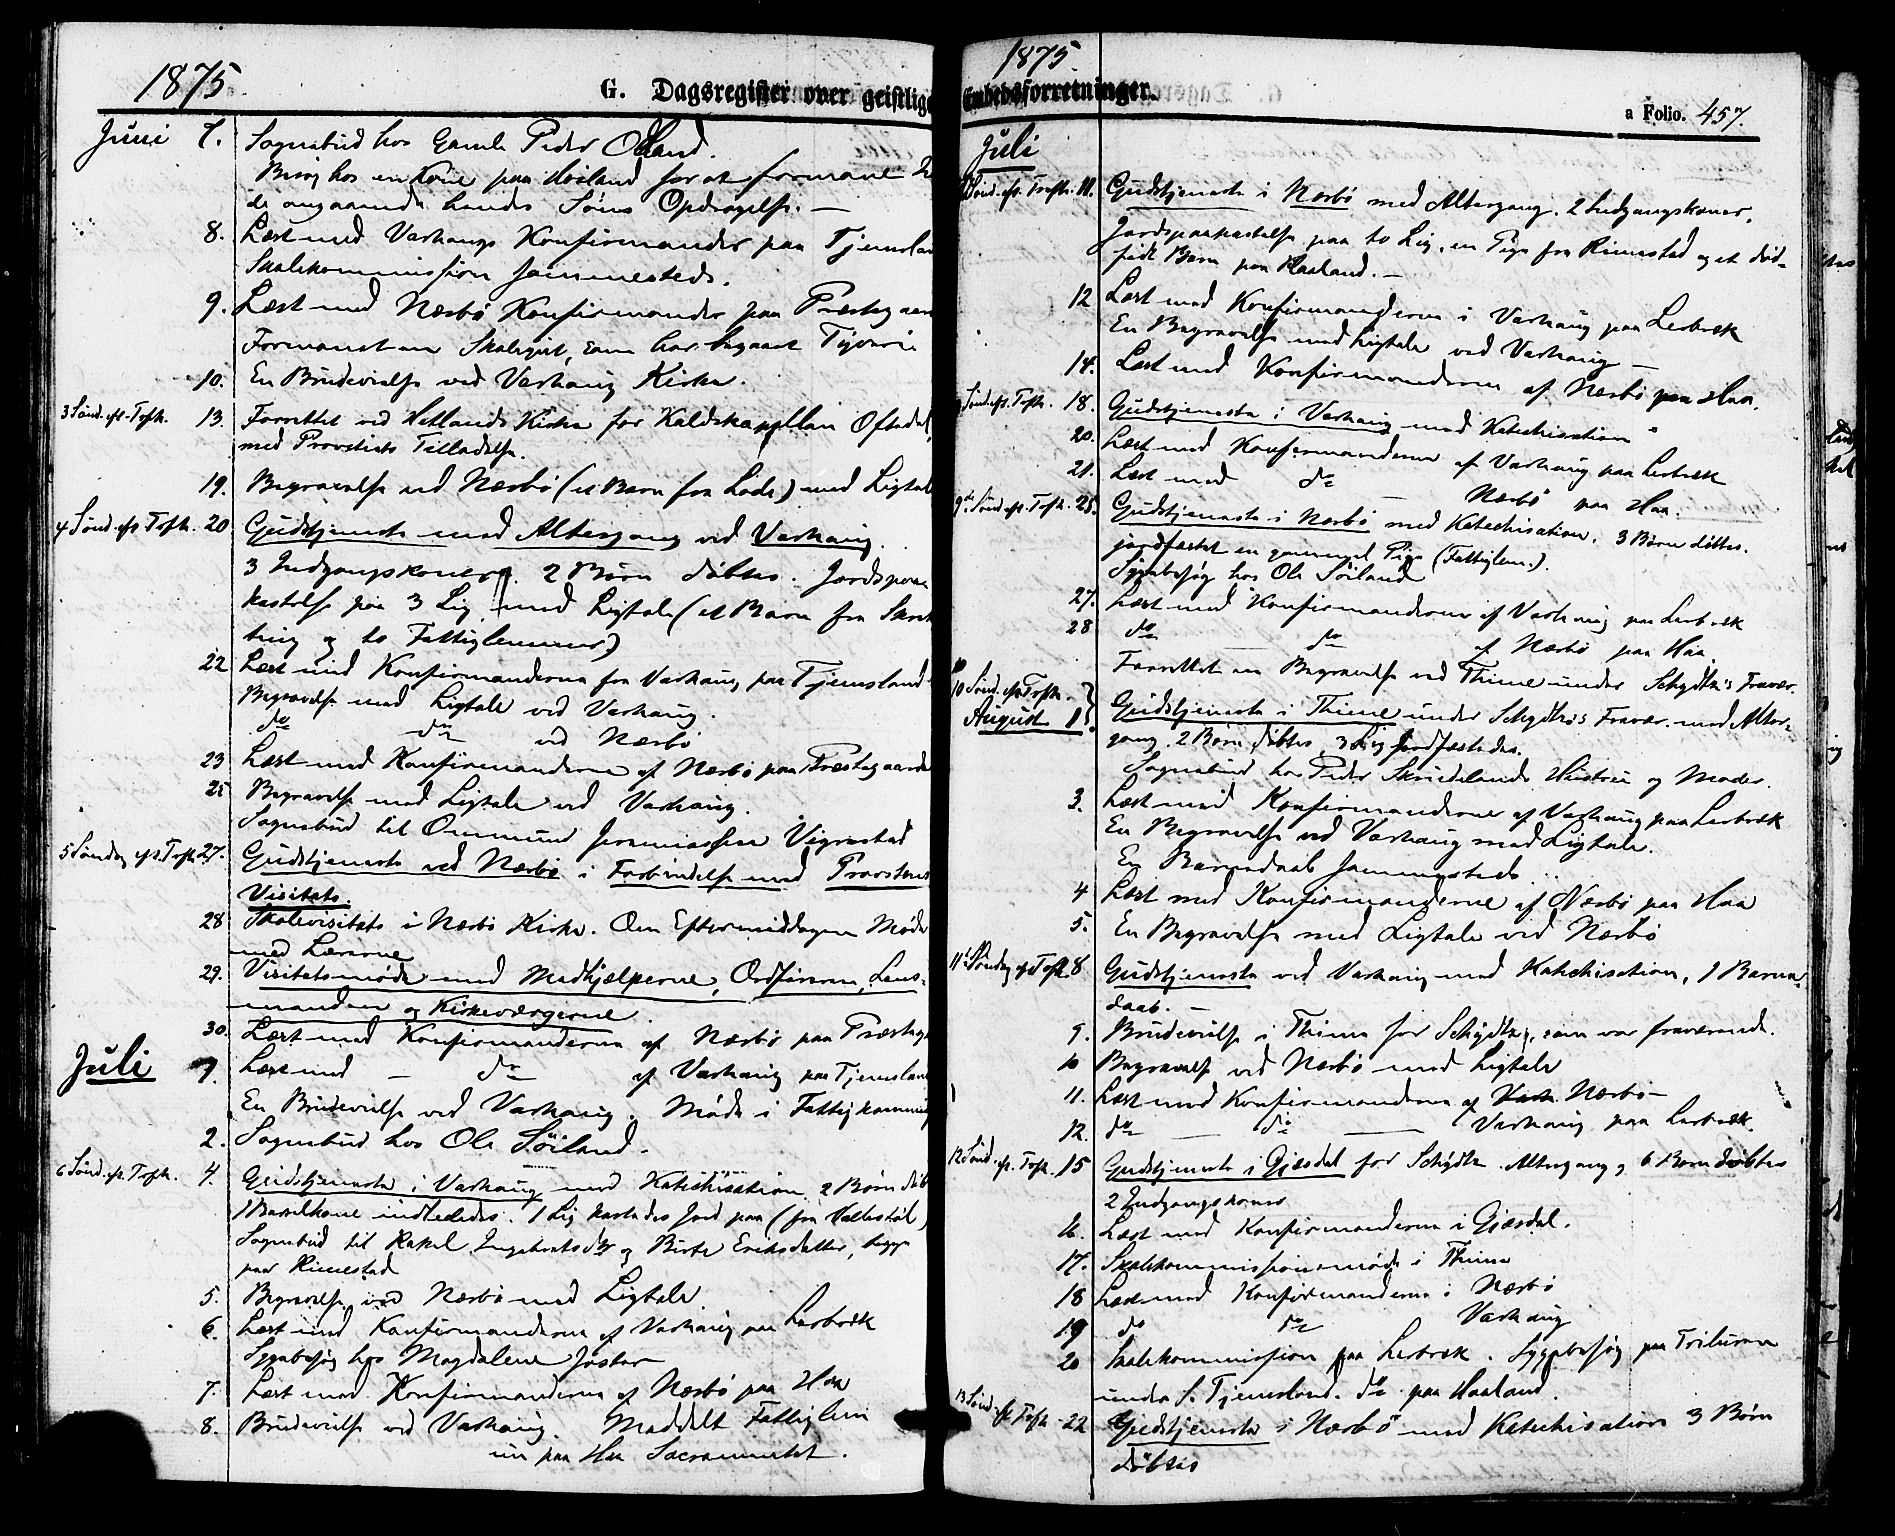 1875
G. Dagsregister over geistlige
Juni 7. Sognebud hos Gamle Peder Obland.
Besøg hos en Kone paa Høiland for at formane
de angaaende hendes Søns Opdragelse. —
8. Læst med Varhaugs Konfirmander paa Tjemslan
Skolekommission sammesteds.
9. Læst med Nærbø Konfirmander paa Præstegaar
Formanet en Skolegut, som har begaaet Tyveri.
10. En Brudevielse ved Varhaug Kirke.
3 Sønd. eft. Trefh. 13. Forrettet ved Hetlands Kirke for Kaldskapellan Oftedal,
med Provstiets Tilladelse.
19. Begravelse ved Nærbø (et Barn fra Lode) med Ligtal
4 Sønd. eft. Trefh. 20 Gudstjeneste med Altergang ved Varhaug.
3 Indgangskoner. 2 Børn døbtes. Jordspaa
kastelse paa 3 Lig med Ligtale (et Barn fra
og to Fattiglemmer)
22 Læst med Konfirmanderne fra Varhaug paa Tjemsland.
Begravelse med Ligtale ved Varhaug.
do do ved Nærbø
23 Læst med Konfirmanderne af Nærbø paa Præstegaarde
25 Begravelse med Ligtale ved Varhaug.
Sognebud til Ommund Jeremiassen Vigrestad
5 Søndag eft. Trefh. 27. Gudstjeneste ved Nærbø i Forbindelse med Provstens
Visitats.
28 Skolevisitats i Nærbø Kirke. Om Eftermiddagen Møde
med Lærerne
29. Visitatsmøde med Medhjælperne, Ordføreren, Lens-
manden og Kirkeværgerne.
30. Læst med Konfirmanderne af Nærbø paa Præsteg
Juli 1. Læst med — do af Varhaug paa Tjemslan
En Brudevielse ved Varhaug. Møde i Fattigkommis
2. Sognebud hos Ole Söiland.
6 Sønd. eft. Trefh. 4. Gudstjeneste i Varhaug med Katechisation. 2 Børn døb
1 Barselkone indlededes. 1 Lig kastedes Jord paa (fra
Sognebud til Rakel Ingebretsdtr og Birte Eriksdatter, begge
paa Rimestad
5. Begravelse ved Nærbø med Ligtale
6. Læst med Konfirmanderne af Varhaug paa Lerbræk
Sygebesøg hos Magdalene
7. Læst med Konfirmanderne af Nærbø paa Haa
8. Brudevielse ved Varhaug. Meddelt Fattiglem
paa Haa Sacramentet.
1875
Embedsforretninger.
a Folio. 457.
Juli
Sønd. eft. Trefh. 11. Gudstjeneste i Nærbø med Altergang. 2 Indgangskoner.
Jordspaakastelse paa to Lig, en Pige fra Rimestad og et død-
født Barn paa
12 Læst med Konfirmanderne i Varhaug paa Lerbræk
En Begravelse med Ligtale ved Varhaug —
14. Læst med Konfirmanderne af Nærbø paa Haa.
Sønd. eft. Trefh. 18. Gudstjeneste i Varhaug med Katechisation
20. Læst med Konfirmanderne af Varhaug paa Lerbræk
21. Læst med do — Nærbø paa Haa.
9de Sønd. eft. Trefh. 25. Gudstjeneste i Nærbø med Katechisation. 3 Børn døbtes.
jordfæstet en gammel Pige (Fattiglem.).
Sygebesøg hos Ole Söiland
27. Læst med Konfirmanderne af Varhaug paa Lerbræk
28 do do af Nærbø paa Haa.
Forrettet en Begravelse ved Thime under Schjøtz's Fravær.
10 Sønd. eft. Trefh.
August 1 Gudstjeneste i Thime under Schjøtz's Fravær med Alter-
gang. 2 Børn døbtes, 3 Lig jordfæstedes.
Sognebud hos Peder Skrudelands Hustru og Moder.
3. Læst med Konfirmanderne af Varhaug paa Lerbræk
En Begravelse ved Varhaug med Ligtale.
En Barnedaab sammesteds.
4 Læst med Konfirmanderne af Nærbø paa Haa
5. En Begravelse med Ligtale ved Nærbø
11 Søndag ef. Trefh. 8 Gudstjeneste ved Varhaug med Katechisation, 1 Barne-
daab. —
9. Brudevielse i Thime for Schjøtz, som var fraværende.
10 Begravelse ved Nærbø med Ligtale
11. Læst med Konfirmanderne af Nærbø —
12. do — do — Varhaug paa Lerbræk.
12 Sønd. eft. Trefh. 15 Gudstjeneste i Gjesdal for Schjøtz. Altergang, 6 Børn døbtes
2 Indgangskoner
16. Læst med Konfirmanderne i Gjesdal.
17. Skolekommissionsmøde i Thime
18 Læst med Konfirmanderne i Nærbø
19 do do Varhaug
20 Skolekommission paa Lerbræk. Sygebesøg paa
under S. Tjemsland. do paa Haaland.
13 Sønd. eft. Trefh. 22 Gudstjeneste i Nærbø med Katechisation 3 Børn
døbtes